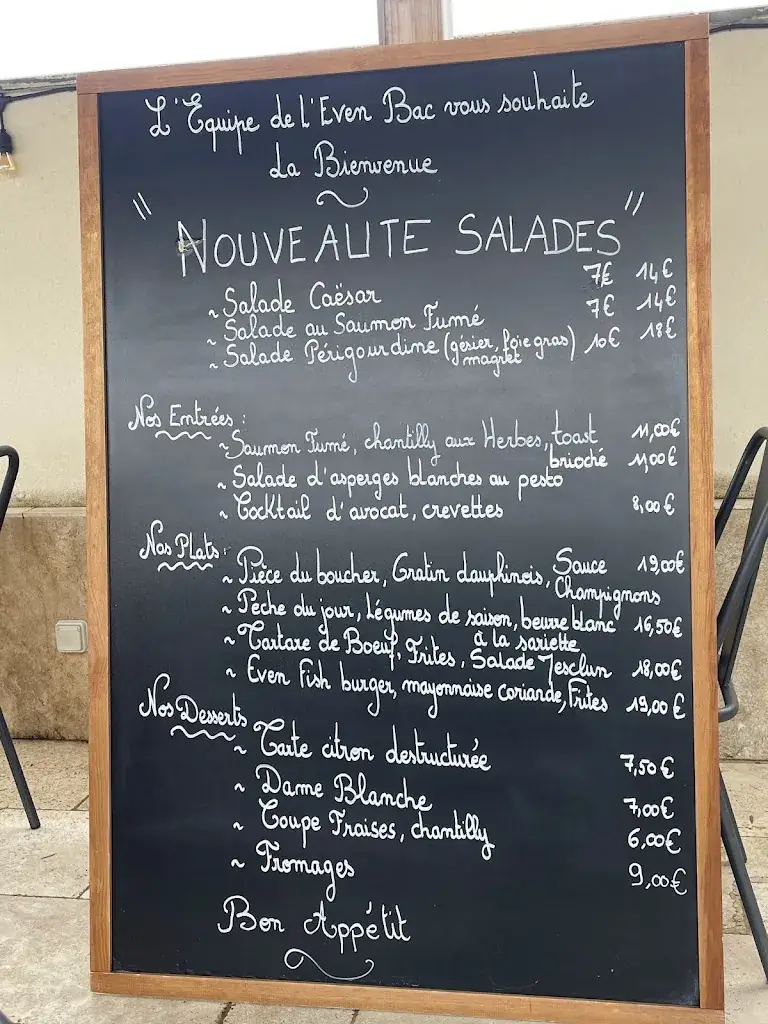 L'Equipe de l'Even Bac vous souhaite
La Bienvenue
"NOUVEAUTE SALADES"
~ Salade Caësar 7€ 14€
~ Salade au Saumon Fumé 7€ 14€
~ Salade Périgourdine (gésier, foie gras) 10€ 18€
magret
Nos Entrées :
~ Saumon Fumé, chantilly aux Herbes, toast 11,00€
brioché
~ Salade d'asperges blanches au pesto 11,00€
~ Cocktail d'avocat, crevettes 8,00€
Nos Plats :
~ Pièce du boucher, Gratin dauphinois, Sauce 19,00€
Champignons
~ Pêche du jour, Légumes de saison, beurre blanc 16,50€
à la sariette
~ Tartare de Boeuf, Frites, Salade Mesclun 18,00€
~ Even Fish burger, mayonnaise coriande, Frites 19,00€
Nos Desserts
~ Tarte citron destructurée 7,50€
~ Dame Blanche 7,00€
~ Coupe Fraises, chantilly 6,00€
~ Fromages 9,00€
Bon Appétit